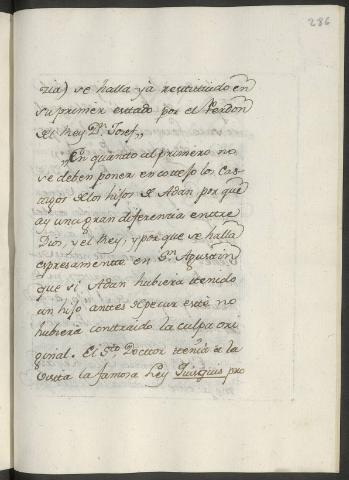 286
zia) se halla yà restituido en
su primer estado por el Perdon
del Rey Dn. Josef,,
,,En quanto al primero no
se deben poner en cotejo los Cas-
tigos de los hijos de Adan por que
ay una gran diferencia entre
Dios, y el Rey, y por que se halla
expresamente en Sn. Agustin
que si Adan hubiera tenido
un hijo antes de pecar este no
hubiera contraido la culpa ori-
ginal. El Sto. Doctor tenia a la
vista la famosa Ley Quisquis pro